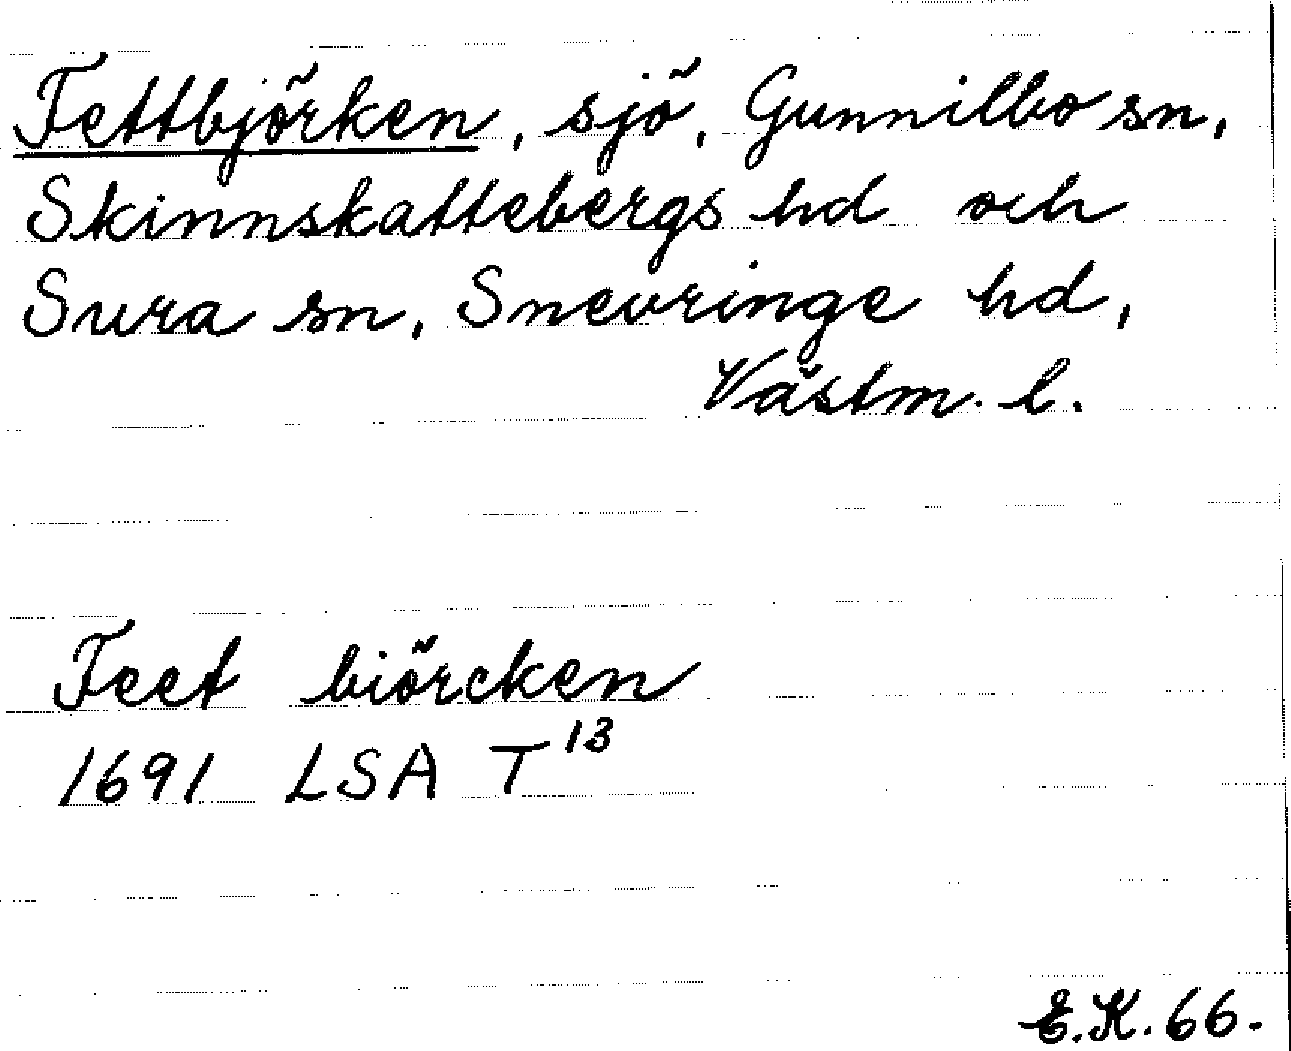 Fettbjörken, sjö, Gunnilbo sn,
Skinnskattebergs hd och
Sura sn, Snevringe hd,
Västm. l.
Feet biörcken
1691 LSA T 13
E.K. 66.